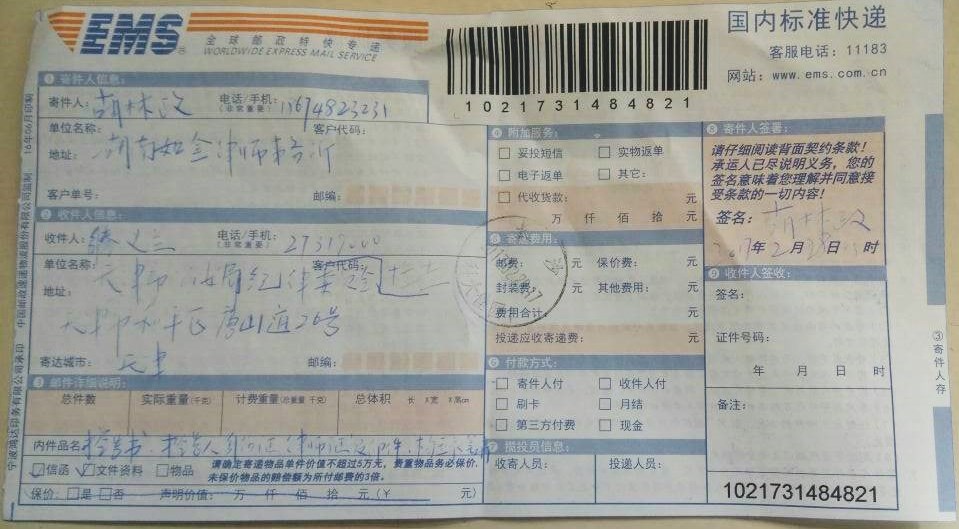 EMS
全球邮政特快专递
WORLDWIDE EXPRESS MAIL SERVICE
1 0 2 1 7 3 1 4 8 4 8 2 1
国内标准快递
客服电话：11183
网站：www.ems.com.cn
① 寄件人信息：
寄件人：胡林政 电话/手机：
（非常重要）
单位名称： 客户代码：
地址：湖南如金律师事务所
客户单号： 邮编：
② 收件人信息：
收件人： 电话/手机：27317000
（非常重要）
单位名称： 客户代码：
地址：天津市
天津市和平区唐山道26号
寄达城市：天津 邮编：
③ 邮件详细说明：
总件数 实际重量（千克） 计费重量（总重量 千克） 总体积 长 X宽 X高cm
内件品名：控告书
信函 文件资料 物品
请确定寄递物品单件价值不超过5万元，贵重物品务必保价.
未保价物品的赔偿额为所付邮费的3倍。
保价：是 否 声明价值： 万 仟 佰 拾 元（￥ 元）
④ 附加服务：
妥投短信 实物返单
电子返单 其它：
代收货款： 元
万 仟 佰 拾 元
⑤ 寄递费用：
邮费： 元 保价费： 元
封装费： 元 其他费用： 元
费用合计： 元
投递应收寄递费： 元
⑥ 付款方式：
寄件人付 收件人付
刷卡 月结
第三方付费 现金
⑦ 揽投员信息：
收寄人员： 投递人员：
⑧ 寄件人签署：
请仔细阅读背面契约条款！
承运人已尽说明义务，您的
签名意味着您理解并同意接
受条款的一切内容！
签名：胡林政
2017年2月 日 时
⑨ 收件人签收：
签名：
证件号码：
年 月 日 时
备注：
1021731484821
③寄件人存
16年06月印制
中国邮政速递物流股份有限公司监制
宁波鸿达印务有限公司承印